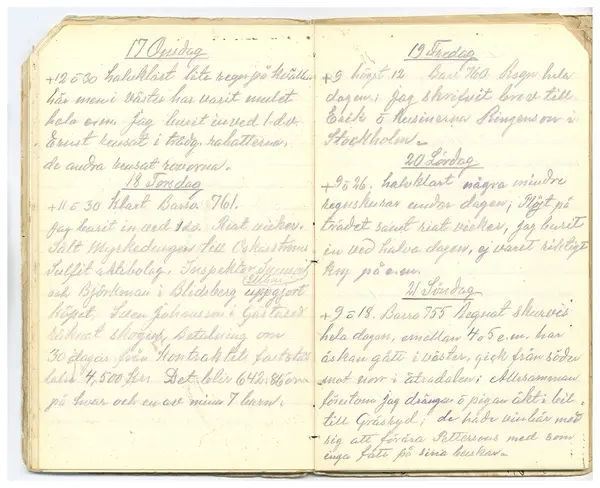 17 Onsdag
+12 o 30 halvklart lite regn på kvällen
här men i väster har varit mulet
hela e.m. Jag burit in ved 1 d.v.
Ernst rensat i trädg. rabatterna,
de andra rensat rovorna.
18 Torsdag
+11 o 30 Klart Baro. 761.
Jag burit in ved
Sålt till Oskarströms
Sulfit Aktiebolag, Inspektor
och Björkman i Blidsberg uppgjort
köpet, Sven Johansson i
räknat skogen, Betalning om
30 dagar från kontraktets
4,500 Krs. Det blir 642:86 öre
på hvar och en av mina 7 barn.
19 Fredag
+9 högst 12 Baro 760. Regn hela
dagen; Jag skrifvit brev till
Erik o kusinerna i
Stockholm.
20 Lördag
+9 o 26. halvklart några mindre
regnskurar under dagen; Plöjt på
trädet samt kört vicker, jag burit
in ved halva dagen, ej varit riktigt
kry på e.m.
21 Söndag
+9 o 18. Baro 755 Regnat skurvis
hela dagen, emellan 4 o 5 e.m. har
åskan gått i väster, gick från söder
mot norr i Ätradalen; Allesamman
förutom jag drängen o pigan åkt i bil
till Gräsryd; de hade vinbär med
sig att förära Pettersons med som
inga fått på sina buskar.